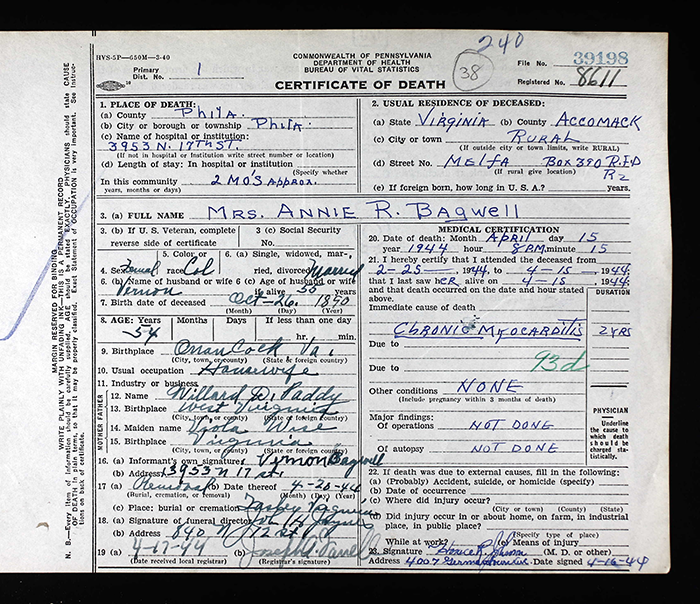 240
HVS-5P—650M—3-40
COMMONWEALTH OF PENNSYLVANIA
DEPARTMENT OF HEALTH
BUREAU OF VITAL STATISTICS
38
File No. 39198
Primary
Dist. No. 1
Registered No. 8611
CERTIFICATE OF DEATH
MARGIN RESERVED FOR BINDING
WRITE PLAINLY WITH UNFADING INK—THIS IS A PERMANENT RECORD
N. B.—Every item of information should be carefully supplied. AGE should be stated EXACTLY. PHYSICIANS should state CAUSE OF DEATH in plain terms, so that it may be properly classified. Exact Statement of OCCUPATION is very important. See Instructions on back of certificate.
1. PLACE OF DEATH:
(a) County Phila.
(b) City or borough or township Phila.
(c) Name of hospital or institution:
3953 N. 17th St.
(If not in hospital or institution write street number or location)
(d) Length of stay: In hospital or institution
(Specify whether
In this community 2 mo's approx.
years, months or days)
2. USUAL RESIDENCE OF DECEASED:
(a) State Virginia (b) County Accomack
(c) City or town Rural
(If outside city or town limits, write RURAL)
(d) Street No. Melfa Box 390 R.F.D
(If rural give location) R2
(e) If foreign born, how long in U. S. A.? years.
3. (a) FULL NAME Mrs. Annie R. Bagwell
3. (b) If U. S. Veteran, complete
reverse side of certificate
3 (c) Social Security
No.
4. Sex Female 5. Color or race Col
6. (a) Single, widowed, married, divorced Married
6. (b) Name of husband or wife
Vernon
6 (c) Age of husband or wife
if alive 50 years
7. Birth date of deceased Oct-26, 1890
(Month) (Day) (Year)
8. AGE: Years Months Days If less than one day
54 hr. min.
9. Birthplace Onancock Va.
(City, town, or county) (State or foreign country)
10. Usual occupation Housewife
11. Industry or business
FATHER
12. Name Willard D. Paddy
13. Birthplace West Virginia
(City, town, or county) (State or foreign country)
MOTHER
14. Maiden name Viola Wise
15. Birthplace Virginia
(City, town, or county) (State or foreign country)
16. (a) Informant's own signature Vernon Bagwell
(b) Address 3953 N 17 st.
17 (a) Removal (b) Date thereof 4-20-44
(Burial, cremation, or removal) (Month) (Day) (Year)
(c) Place: burial or cremation
18. (a) Signature of funeral director
(b) Address 840 N 12 st
19 (a) 4-17-44 (b)
(Date received local registrar) (Registrar's signature)
MEDICAL CERTIFICATION
20. Date of death: Month April day 15
year 1944 hour 8PM minute 15
21. I hereby certify that I attended the deceased from
2-25- 1944, to 4-15-, 1944;
that I last saw her alive on 4-15-, 1944;
and that death occurred on the date and hour stated above.
DURATION
Immediate cause of death
Chronic Myocarditis 2 yrs
Due to
93d
Due to
Other conditions None
(Include pregnancy within 3 months of death)
Major findings:
Of operations Not done
Of autopsy Not done
PHYSICIAN
Underline the cause to which death should be charged statistically.
22. If death was due to external causes, fill in the following:
(a) (Probably) Accident, suicide, or homicide (specify)
(b) Date of occurrence
(c) Where did injury occur?
(City or town) (County) (State)
(d) Did injury occur in or about home, on farm, in industrial
place, in public place?
(Specify type of place)
While at work? (e) Means of injury
23. Signature (M. D. or other)
Address 4007 Date signed 4-16-44